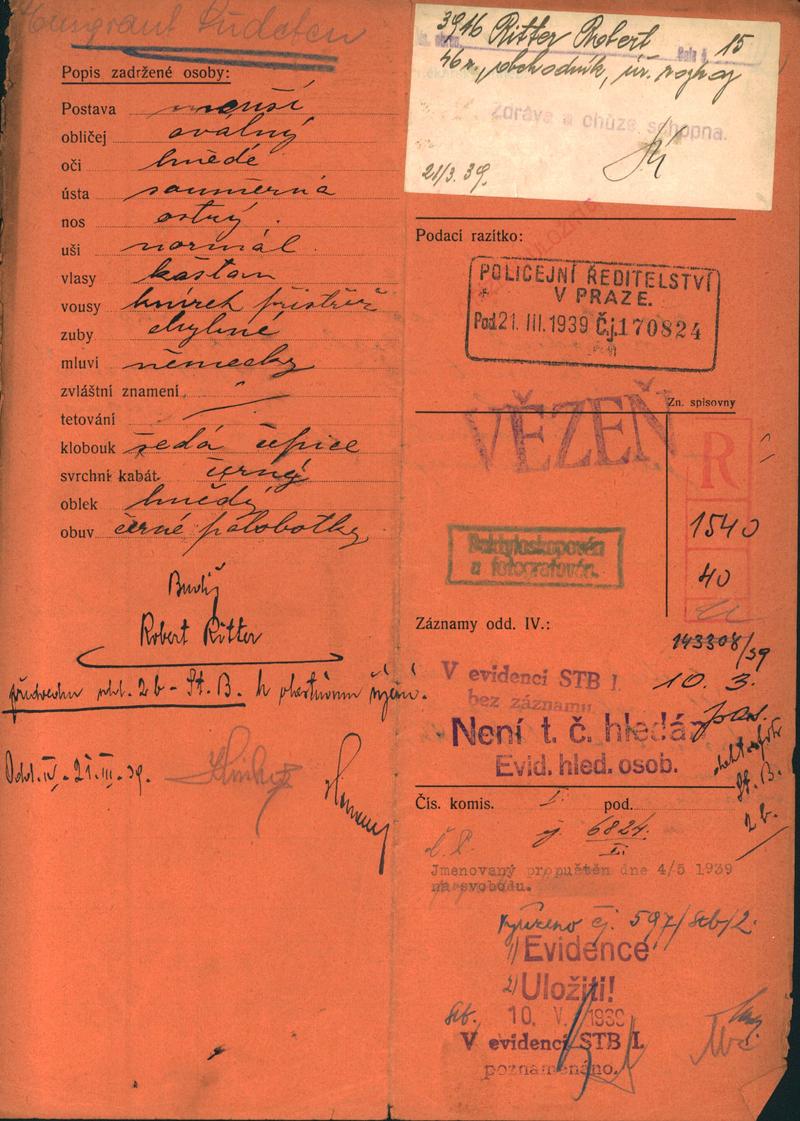 Emigrant Sudeten
Popis zadržené osoby:
Postava menší
obličej oválný
oči hnědé
ústa souměrná
nos ostrý
uši normál
vlasy kaštan
vousy knírek přistřiž
zuby chybné
mluví německy
zvláštní znamení
tetování
klobouk šedá čepice
svrchní kabát černý
oblek hnědý
obuv černé polobotky
Budiž
Robert Ritter
předveden odd. 2b - St. B.
Odd. IV. - 21. III. 39.
3946 Ritter Robert 15
46 r., obchodník,
Zdráva a chůze schopna.
21/3. 39.
Podací razítko:
POLICEJNÍ ŘEDITELSTVÍ
V PRAZE.
Pod. 21. III. 1939 Č.j. 170824
VĚZEŇ
Zn. spisovny
R
1540
40
Daktyloskopován
a fotografován.
Záznamy odd. IV.:
143308/39
V evidenci STB I.
bez záznamu
10. 3.
Není t. č. hledán
Evid. hled. osob.
St. B.
2 b.
Čís. komis. I. pod.
6824
I.
Jmenovaný propuštěn dne 4/5 1939
na svobodu.
Vyřízeno čj. 597/Stb/2.
1) Evidence
2) Uložiti!
Stb. 10. V. 1939
V evidenci STB I.
poznamenáno.